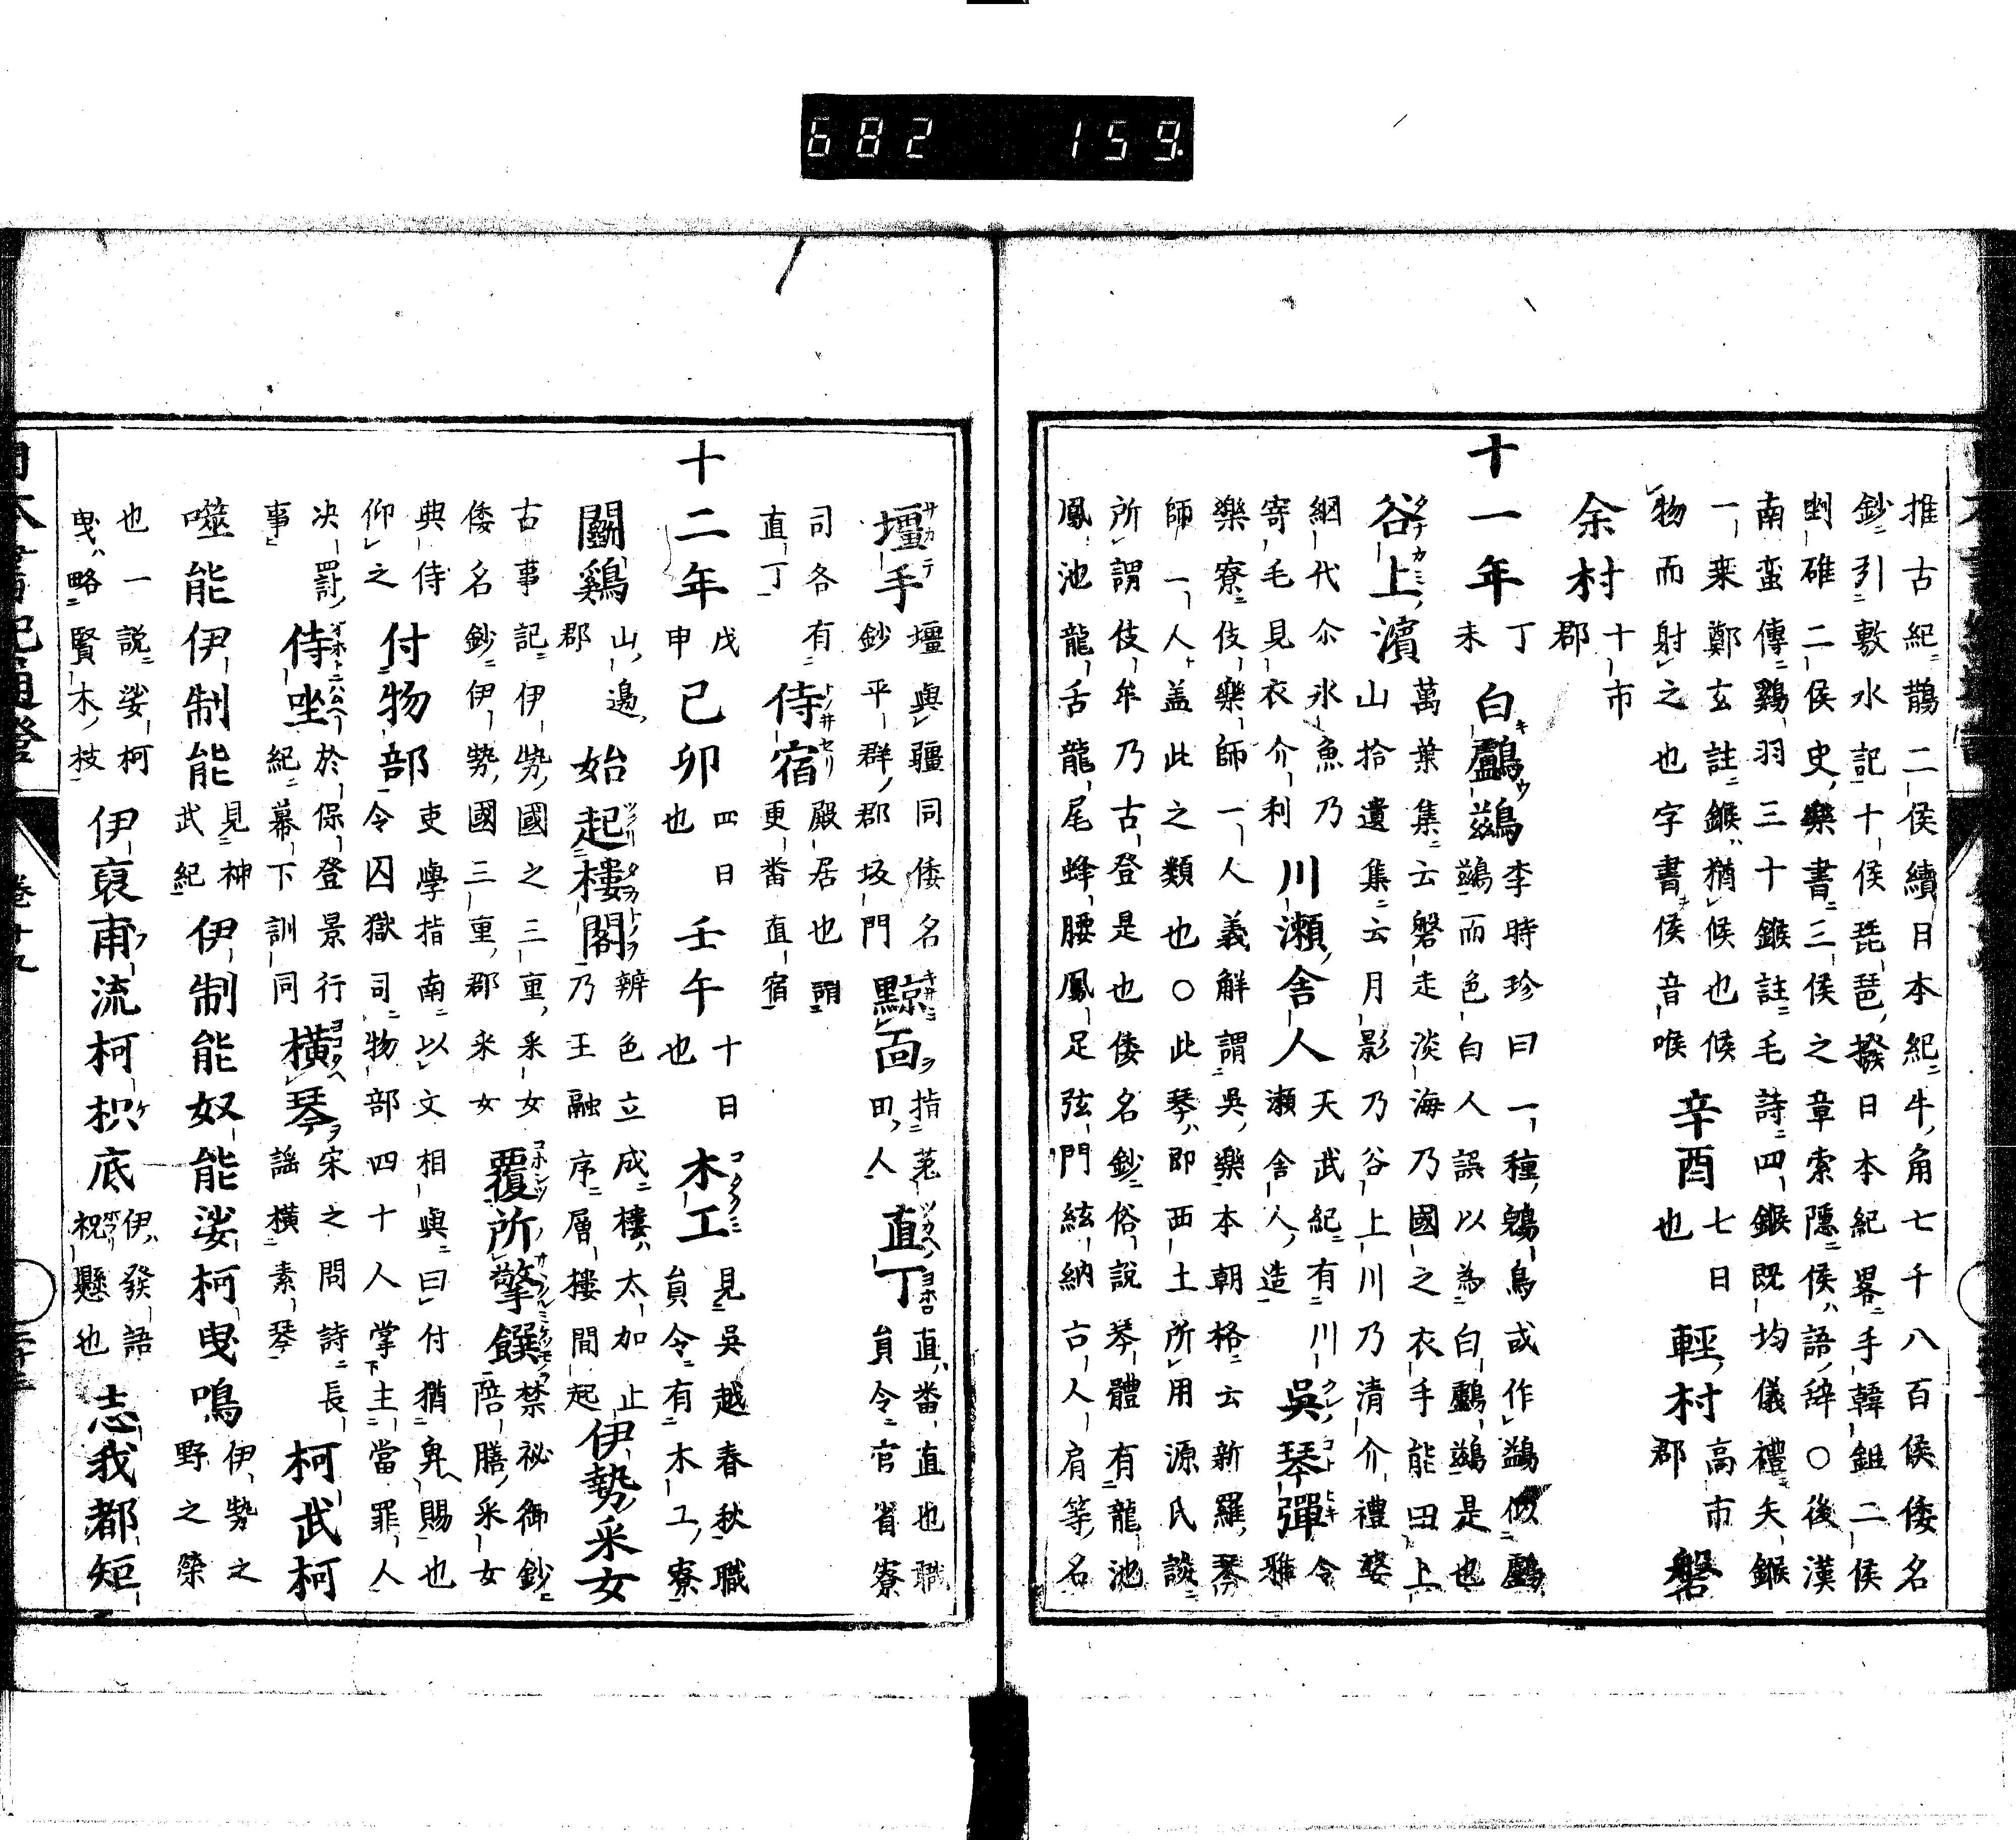 682 159.
推古紀鵲二侯續日本紀牛角七千八百侯倭名
鈔引敷水記十侯琵琶撥日本紀畧手韓鉏二侯
剉碓二侯史樂書三侯之章索隱侯語辞〇後漢
南蛮傳鷄羽三十鍭註毛詩四鍭既均儀禮矢鍭
一乗鄭玄註鍭猶候也候
物而射之也字書侯音喉 辛酉 七日也 輕村 高市郡 磐
余村 十市郡
十一年 丁未 白鸕鷀 李時珍曰一種鵁鳥或作鷀似鸕
鷀而色白人誤以為白鸕鷀是也
谷上濱 萬葉集云磐走淡海乃國之衣手能田上
山拾遺集云月影乃谷上川乃清介禮婆
網代尓氷魚乃
寄毛見衣介利 川瀬舎人 天武紀有川
瀬舎人造 吳琴彈 令
雅
樂寮伎樂師一人義解謂吳樂本朝格云新羅琴
師一人盖此之類也〇此琴即西土所用源氏談
所謂伎牟乃古登是也倭名鈔俗說琴體有龍池
鳳池龍舌龍尾蜂腰鳳足弦門絃納古人肩等名
壇手 壇與疆同倭名
鈔平群郡坂門 黥面 指
田人 直丁 直番直也職
員令官省寮
司各有
直丁 侍宿 殿居也謂
更番直宿
十二年 戊申 己卯 四日也 壬午 十日也 木工 見吳越春秋職
員令有木工寮
鬭鷄 山邊郡 始起樓閣 辨色立成樓太加止
乃王融序層樓間起 伊勢采女
古事記伊勢國之三重采女
倭名鈔伊勢國三重郡采女 覆所擎饌 禁祕御鈔
陪膳采女
典侍
仰之 付物部 吏學指南以文相與曰付猶卑賜也
令囚獄司物部四十人掌主當罪人
决罰
事 侍坐 於保登景行
紀幕下訓同 横琴 宋之問詩長
謡横素琴 柯武柯
噬能伊制能 見神武紀 伊制能奴能娑柯曳鳴 伊勢之
野之榮
也一說娑柯
曳略賢木枝 伊裒甫流柯枳底 伊發語
祝懸也 志我都矩